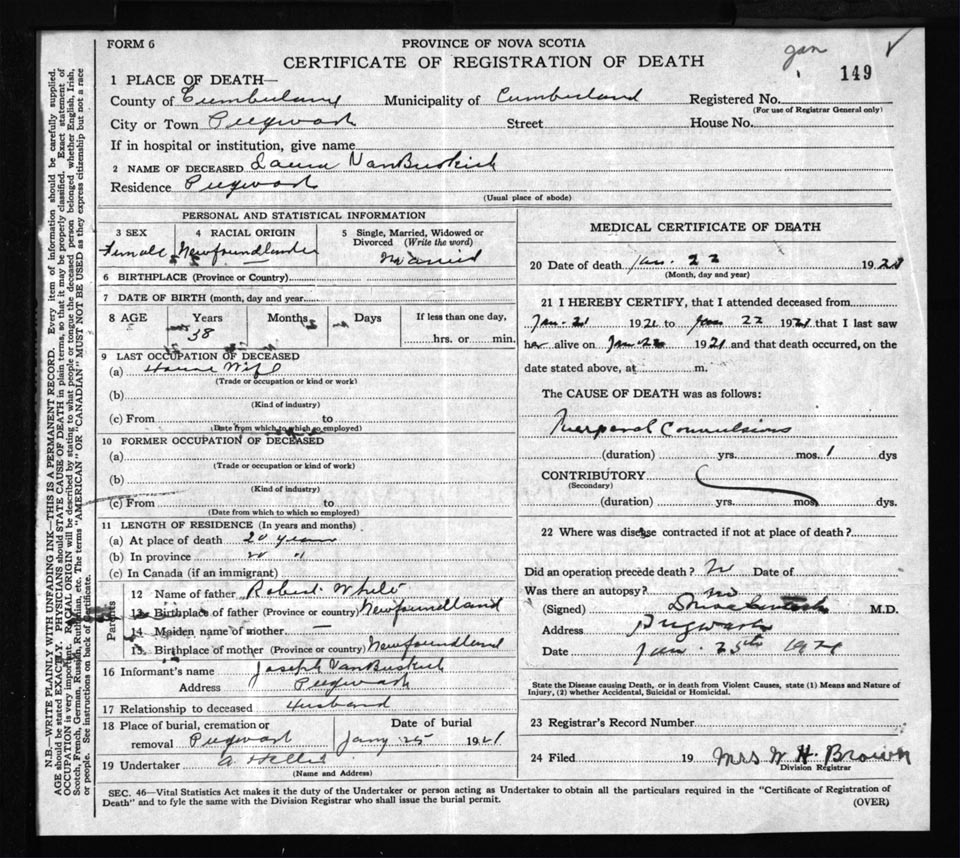 FORM 6
PROVINCE OF NOVA SCOTIA
Jan
CERTIFICATE OF REGISTRATION OF DEATH
149
1 PLACE OF DEATH—
County of Cumberland Municipality of Cumberland Registered No.
(For use of Registrar General only)
City or Town Pugwash Street House No.
If in hospital or institution, give name
2 NAME OF DECEASED Laura VanBuskirk
Residence Pugwash
(Usual place of abode)
PERSONAL AND STATISTICAL INFORMATION
3 SEX 4 RACIAL ORIGIN 5 Single, Married, Widowed or Divorced (Write the word)
Female Newfoundlander Married
6 BIRTHPLACE (Province or Country)
7 DATE OF BIRTH (month, day and year
8 AGE Years Months Days If less than one day,
38 hrs. or min.
9 LAST OCCUPATION OF DECEASED
(a) House Wife
(Trade or occupation or kind or work)
(b)
(Kind of industry)
(c) From to
(Date from which to which so employed)
10 FORMER OCCUPATION OF DECEASED
(a)
(Trade or occupation or kind of work)
(b)
(Kind of industry)
(c) From to
(Date from which to which so employed)
11 LENGTH OF RESIDENCE (In years and months)
(a) At place of death 20 years
(b) In province 20 "
(c) In Canada (if an immigrant)
Parents
12 Name of father Robert White
13 Birthplace of father (Province or country) Newfoundland
14 Maiden name of mother —
15 Birthplace of mother (Province or country) Newfoundland
16 Informant's name Joseph VanBuskirk
Address Pugwash
17 Relationship to deceased Husband
18 Place of burial, cremation or Date of burial
removal Pugwash Jany 25 1921
19 Undertaker A.
(Name and Address)
MEDICAL CERTIFICATE OF DEATH
20 Date of death Jan. 22 192
(Month, day and year)
21 I HEREBY CERTIFY, that I attended deceased from
Jan. 21 1921 to Jan 22 1921 that I last saw
her alive on Jan 22 1921 and that death occurred, on the
date stated above, at m.
The CAUSE OF DEATH was as follows:
Puerperal Convulsions
(duration) yrs. mos. 1 dys
CONTRIBUTORY
(Secondary)
(duration) yrs. mos. dys.
22 Where was disease contracted if not at place of death?
Did an operation precede death? No Date of
Was there an autopsy? no
(Signed) M.D.
Address Pugwash
Date Jan. 25th 1921
State the Disease causing Death, or in death from Violent Causes, state (1) Means and Nature of
Injury, (2) whether Accidental, Suicidal or Homicidal.
23 Registrar's Record Number
24 Filed 19 Mrs W H Brown
Division Registrar
SEC. 46—Vital Statistics Act makes it the duty of the Undertaker or person acting as Undertaker to obtain all the particulars required in the "Certificate of Registration of
Death" and to fyle the same with the Division Registrar who shall issue the burial permit.
(OVER)
N.B.—WRITE PLAINLY WITH UNFADING INK—THIS IS A PERMANENT RECORD. Every item of information should be carefully supplied.
AGE should be stated EXACTLY. PHYSICIANS should STATE CAUSE OF DEATH in plain terms, so that it may be properly classified. Exact statement of
OCCUPATION is very important. RACIAL ORIGIN will be described by stating to what people or tongue the deceased person belonged whether English, Irish,
Scotch, French, German, Russian, Ruthenian, etc. The terms "AMERICAN" OR "CANADIAN" MUST NOT BE USED as they express citizenship but not a race
or people. See instructions on back of certificate.